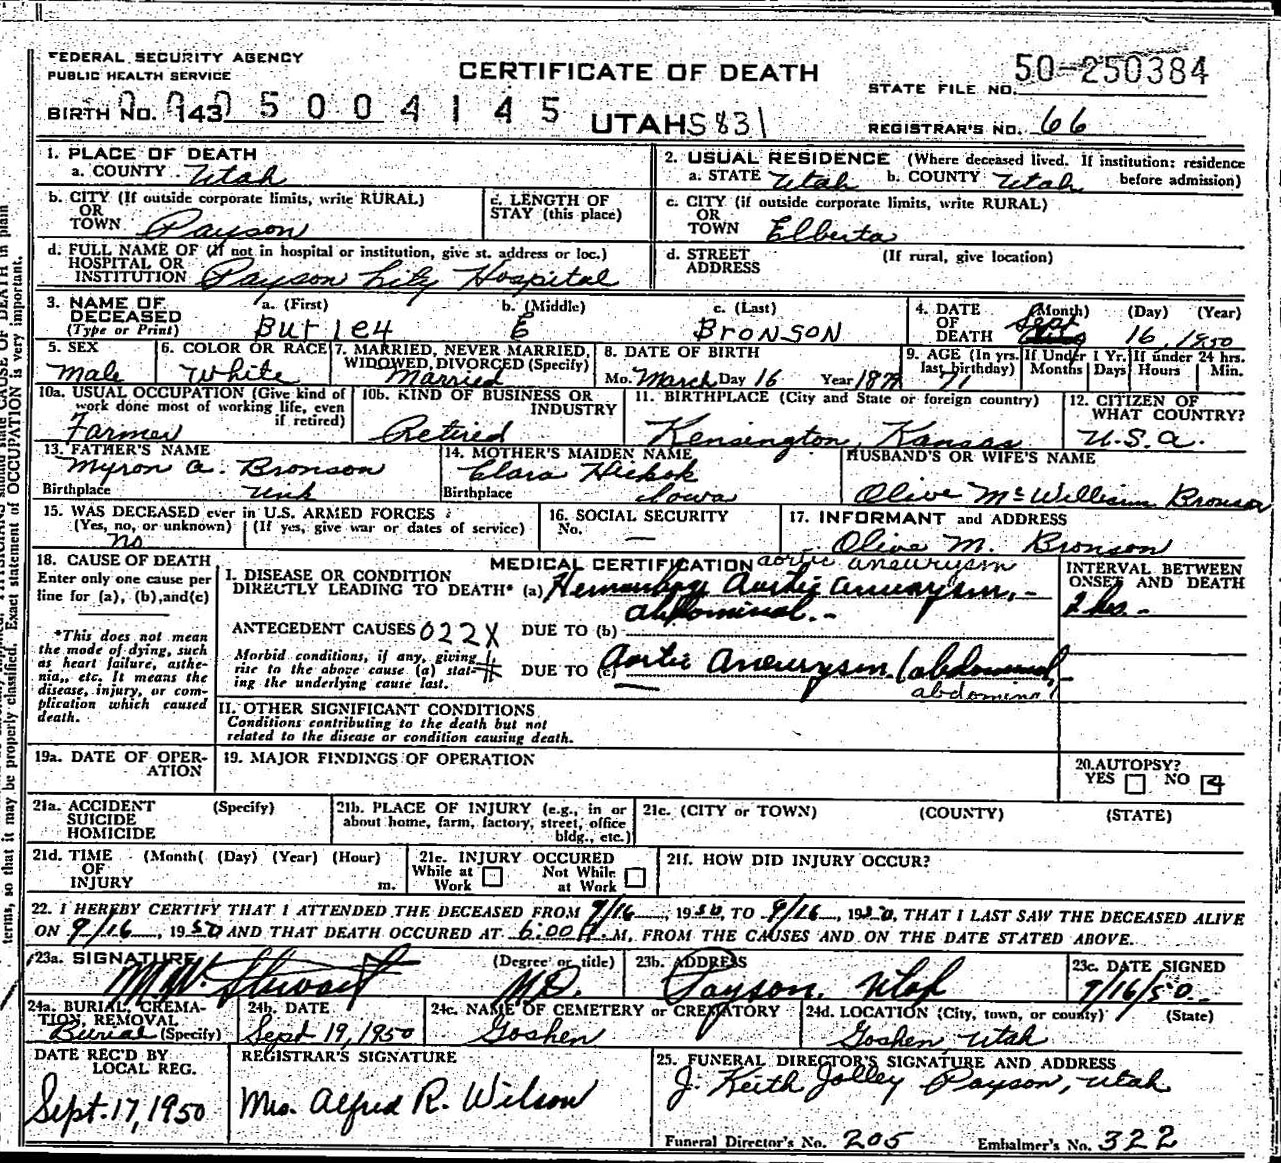 FEDERAL SECURITY AGENCY
PUBLIC HEALTH SERVICE
CERTIFICATE OF DEATH
STATE FILE NO. 50-250384
BIRTH NO. 143 0005004145
UTAH S831
REGISTRAR'S NO. 66
1. PLACE OF DEATH
a. COUNTY Utah
2. USUAL RESIDENCE (Where deceased lived. If institution: residence before admission)
a. STATE Utah b. COUNTY Utah
b. CITY (If outside corporate limits, write RURAL)
OR
TOWN Payson
c. LENGTH OF
STAY (this place)
c. CITY (if outside corporate limits, write RURAL)
OR
TOWN Elberta
d. FULL NAME OF (If not in hospital or institution, give st. address or loc.)
HOSPITAL OR
INSTITUTION Payson City Hospital
d. STREET (If rural, give location)
ADDRESS
3. NAME OF
DECEASED
(Type or Print)
a. (First) b. (Middle) c. (Last)
Burley E BRONSON
4. DATE (Month) (Day) (Year)
OF
DEATH Sept 16, 1950
5. SEX
Male
6. COLOR OR RACE
White
7. MARRIED, NEVER MARRIED,
WIDOWED, DIVORCED (Specify)
Married
8. DATE OF BIRTH
Mo. March Day 16 Year 1879
9. AGE (In yrs. last birthday) 71
If Under 1 Yr.
Months Days
If under 24 hrs.
Hours Min.
10a. USUAL OCCUPATION (Give kind of
work done most of working life, even
if retired)
Farmer
10b. KIND OF BUSINESS OR
INDUSTRY
Retired
11. BIRTHPLACE (City and State or foreign country)
Kensington, Kansas
12. CITIZEN OF
WHAT COUNTRY?
U.S.A.
13. FATHER'S NAME
Myron A. Bronson
Birthplace Unk
14. MOTHER'S MAIDEN NAME
Clara Hickok
Birthplace Iowa
HUSBAND'S OR WIFE'S NAME
Olive McWilliams Bronson
15. WAS DECEASED ever in U.S. ARMED FORCES?
(Yes, no, or unknown) (If yes, give war or dates of service)
No
16. SOCIAL SECURITY
No. —
17. INFORMANT and ADDRESS
Olive M. Bronson
18. CAUSE OF DEATH
Enter only one cause per
line for (a), (b), and (c)
*This does not mean
the mode of dying, such
as heart failure, asthe-
nia,, etc. It means the
disease, injury, or com-
plication which caused
death.
MEDICAL CERTIFICATION aortic aneurysm
I. DISEASE OR CONDITION
DIRECTLY LEADING TO DEATH* (a) Hemorrhage Aortic aneurysm, -
abdominal. -
ANTECEDENT CAUSES 022X DUE TO (b)
Morbid conditions, if any, giving
rise to the above cause (a) stat-
ing the underlying cause last.
DUE TO (c) Aortic Aneurysm (abdominal)
abdominal
INTERVAL BETWEEN
ONSET AND DEATH
2 hrs. -
II. OTHER SIGNIFICANT CONDITIONS
Conditions contributing to the death but not
related to the disease or condition causing death.
19a. DATE OF OPER-
ATION
19. MAJOR FINDINGS OF OPERATION
20. AUTOPSY?
YES NO
21a. ACCIDENT (Specify)
SUICIDE
HOMICIDE
21b. PLACE OF INJURY (e.g., in or
about home, farm, factory, street, office
bldg., etc.)
21c. (CITY or TOWN) (COUNTY) (STATE)
21d. TIME (Month( (Day) (Year) (Hour)
OF
INJURY m.
21e. INJURY OCCURED
While at Work Not While at Work
21f. HOW DID INJURY OCCUR?
22. I HEREBY CERTIFY THAT I ATTENDED THE DECEASED FROM 9/16, 1950, TO 9/16, 1950, THAT I LAST SAW THE DECEASED ALIVE
ON 9/16, 1950 AND THAT DEATH OCCURED AT 6:00 P.M, FROM THE CAUSES AND ON THE DATE STATED ABOVE.
23a. SIGNATURE (Degree or title)
M.W. Stewart M.D.
23b. ADDRESS
Payson, Utah
23c. DATE SIGNED
9/16/50 -
24a. BURIAL, CREMA-
TION, REMOVAL
Burial (Specify)
24b. DATE
Sept 19, 1950
24c. NAME OF CEMETERY or CREMATORY
Goshen
24d. LOCATION (City, town, or county) (State)
Goshen, Utah
DATE REC'D BY
LOCAL REG.
Sept. 17, 1950
REGISTRAR'S SIGNATURE
Mrs. Alfred R. Wilson
25. FUNERAL DIRECTOR'S SIGNATURE AND ADDRESS
J. Keith Jolley Payson, Utah
Funeral Director's No. 205 Embalmer's No. 322
terms, so that it may be properly classified. Exact statement of OCCUPATION is very important.
CAUSE OF DEATH in plain